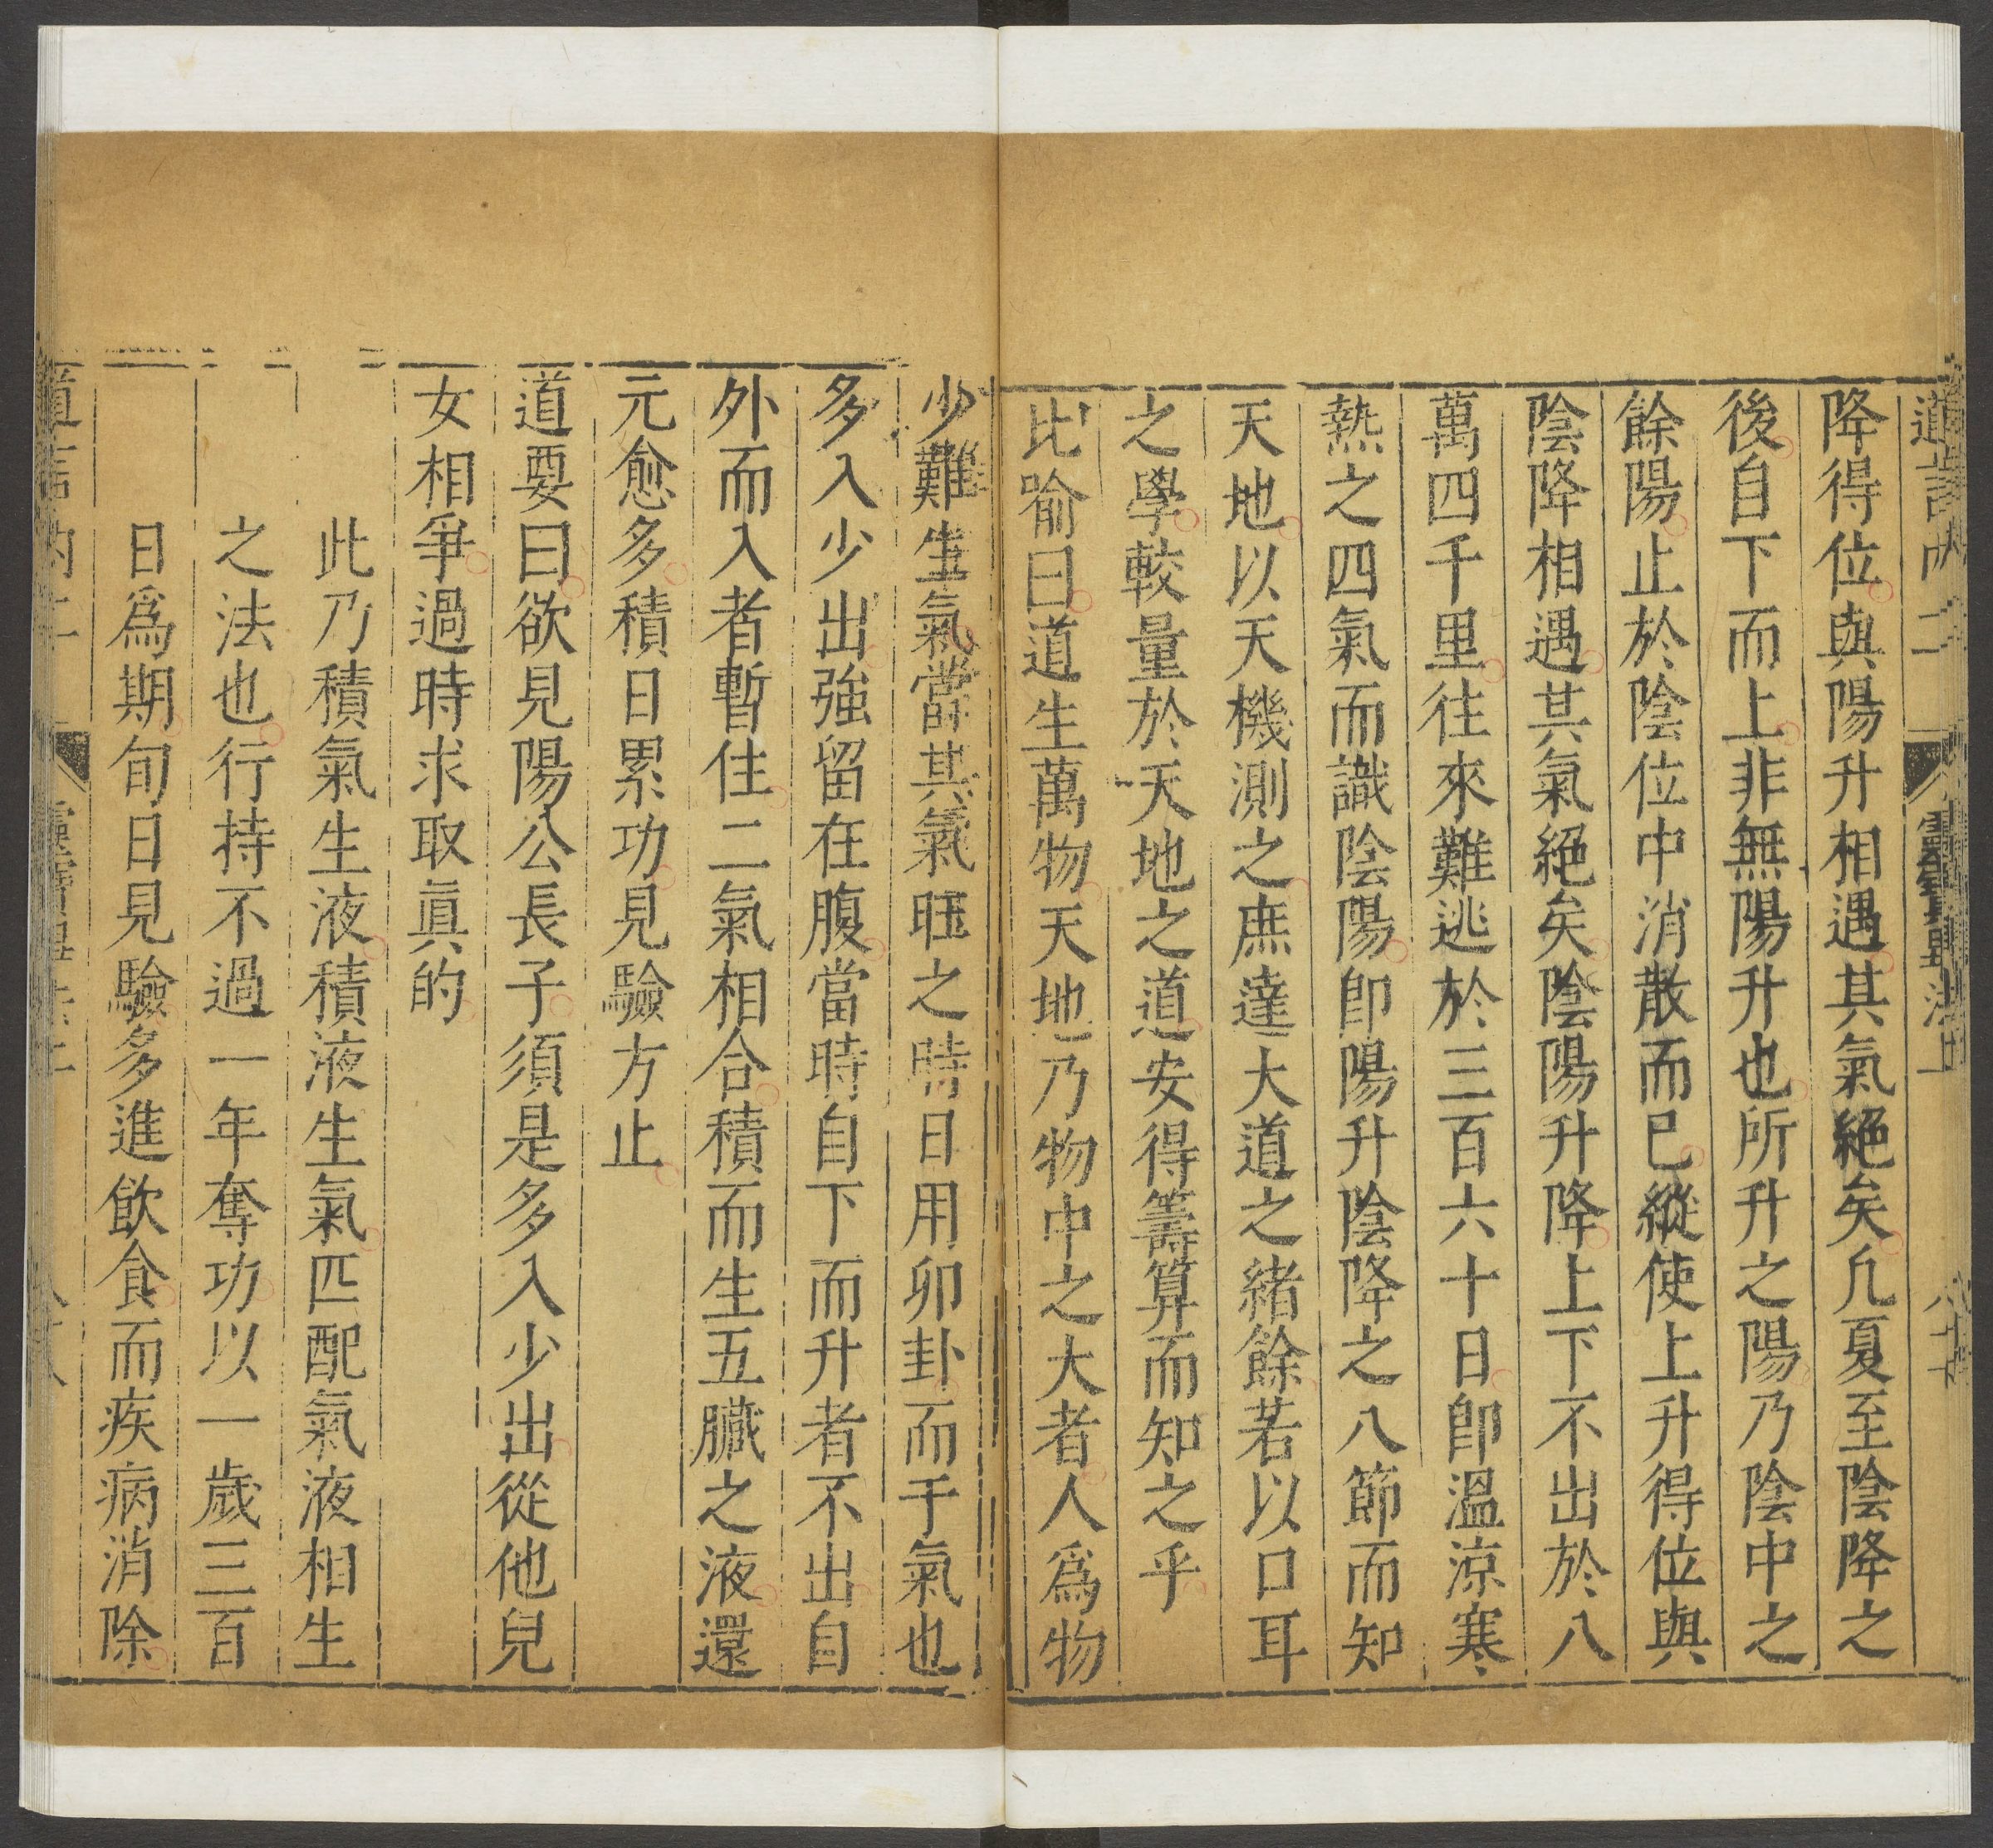 降得位與陽升相遇其氣絕矣凡夏至陰降之
後自下而上非無陽升也所升之陽乃陰中之
餘陽止於陰位中消散而巳縱使上升得位與
陰降相遇其氣絕矣陰陽升降上下不出於八
萬四千里往來難逃於三百六十日卽溫涼寒
熱之四氣而識陰陽卽陽升陰降之八節而知
天地以天機測之庶達大道之緒餘若以口耳
之學較量於天地之道安得籌算而知之乎
比喻曰道生萬物天地乃物中之大者人爲物
少難生氣當其氣旺之時日用卯卦而于氣也
多入少出強留在腹當時自下而升者不出自
外而入者暫住二氣相合積而生五臟之液還
元愈多積日累功見驗方止
道要曰欲見陽公長子須是多入少出從他兒
女相爭過時求取眞的
此乃積氣生液積液生氣匹配氣液相生
之法也行持不過一年奪功以一歲三百
日爲期旬日見驗多進飲食而疾病消除